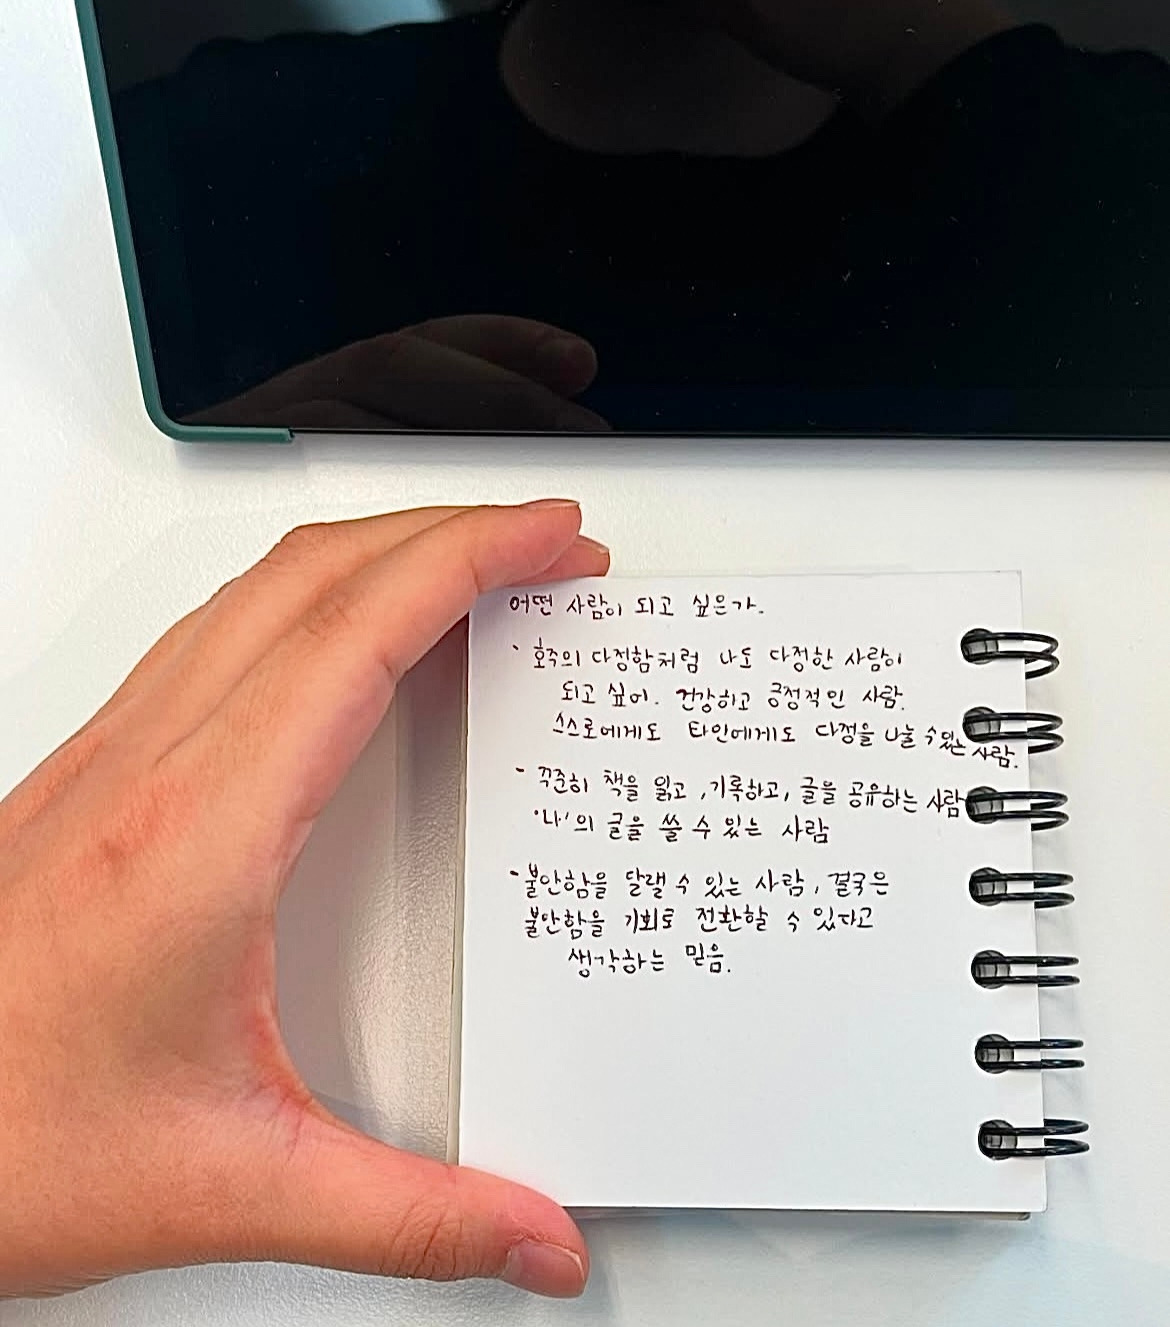 어떤 사람이 되고 싶은가.
· 호주의 다정함처럼 나도 다정한 사람이
되고 싶어. 건강하고 긍정적인 사람.
스스로에게도 타인에게도 다정을 나눌 수 있는 사람.
- 꾸준히 책을 읽고, 기록하고, 글을 공유하는 사람
'나'의 글을 쓸 수 있는 사람
- 불안함을 달랠 수 있는 사람, 결국은
불안함을 기회로 전환할 수 있다고
생각하는 믿음.